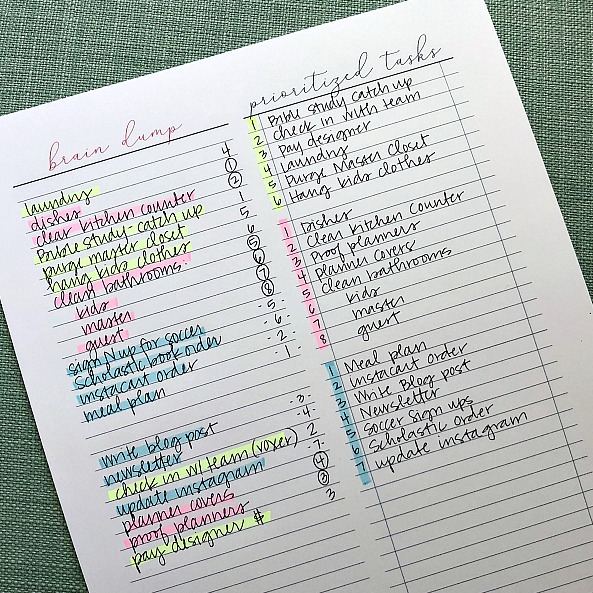 brain dump
laundry 4
dishes 1
clear kitchen counter 2
Bible Study - catch up 1
purge master closet 5
hang kids clothes 6
clean bathrooms: 5
kids 6
master 7
guest 8
sign N up for soccer -5-
Scholastic book order -6-
instacart order -2-
meal plan 1
write blog post -3-
newsletter -4-
check in w/ team (voxer) 2
update instagram -7-
planner covers 4
proof planners 3
pay designer $ 3
prioritized tasks
1 Bible Study catch up
2 check in with team
3 Pay designer
4 Laundry
5 Purge Master Closet
6 Hang kids clothes
1 Dishes
2 Clean Kitchen Counter
3 Proof planners
4 Planner covers
5 Clean bathrooms
6 kids
7 master
8 guest
1 Meal plan
2 Instacart order
3 Write Blog post
4 Newsletter
5 Soccer sign ups
6 Scholastic order
7 update instagram